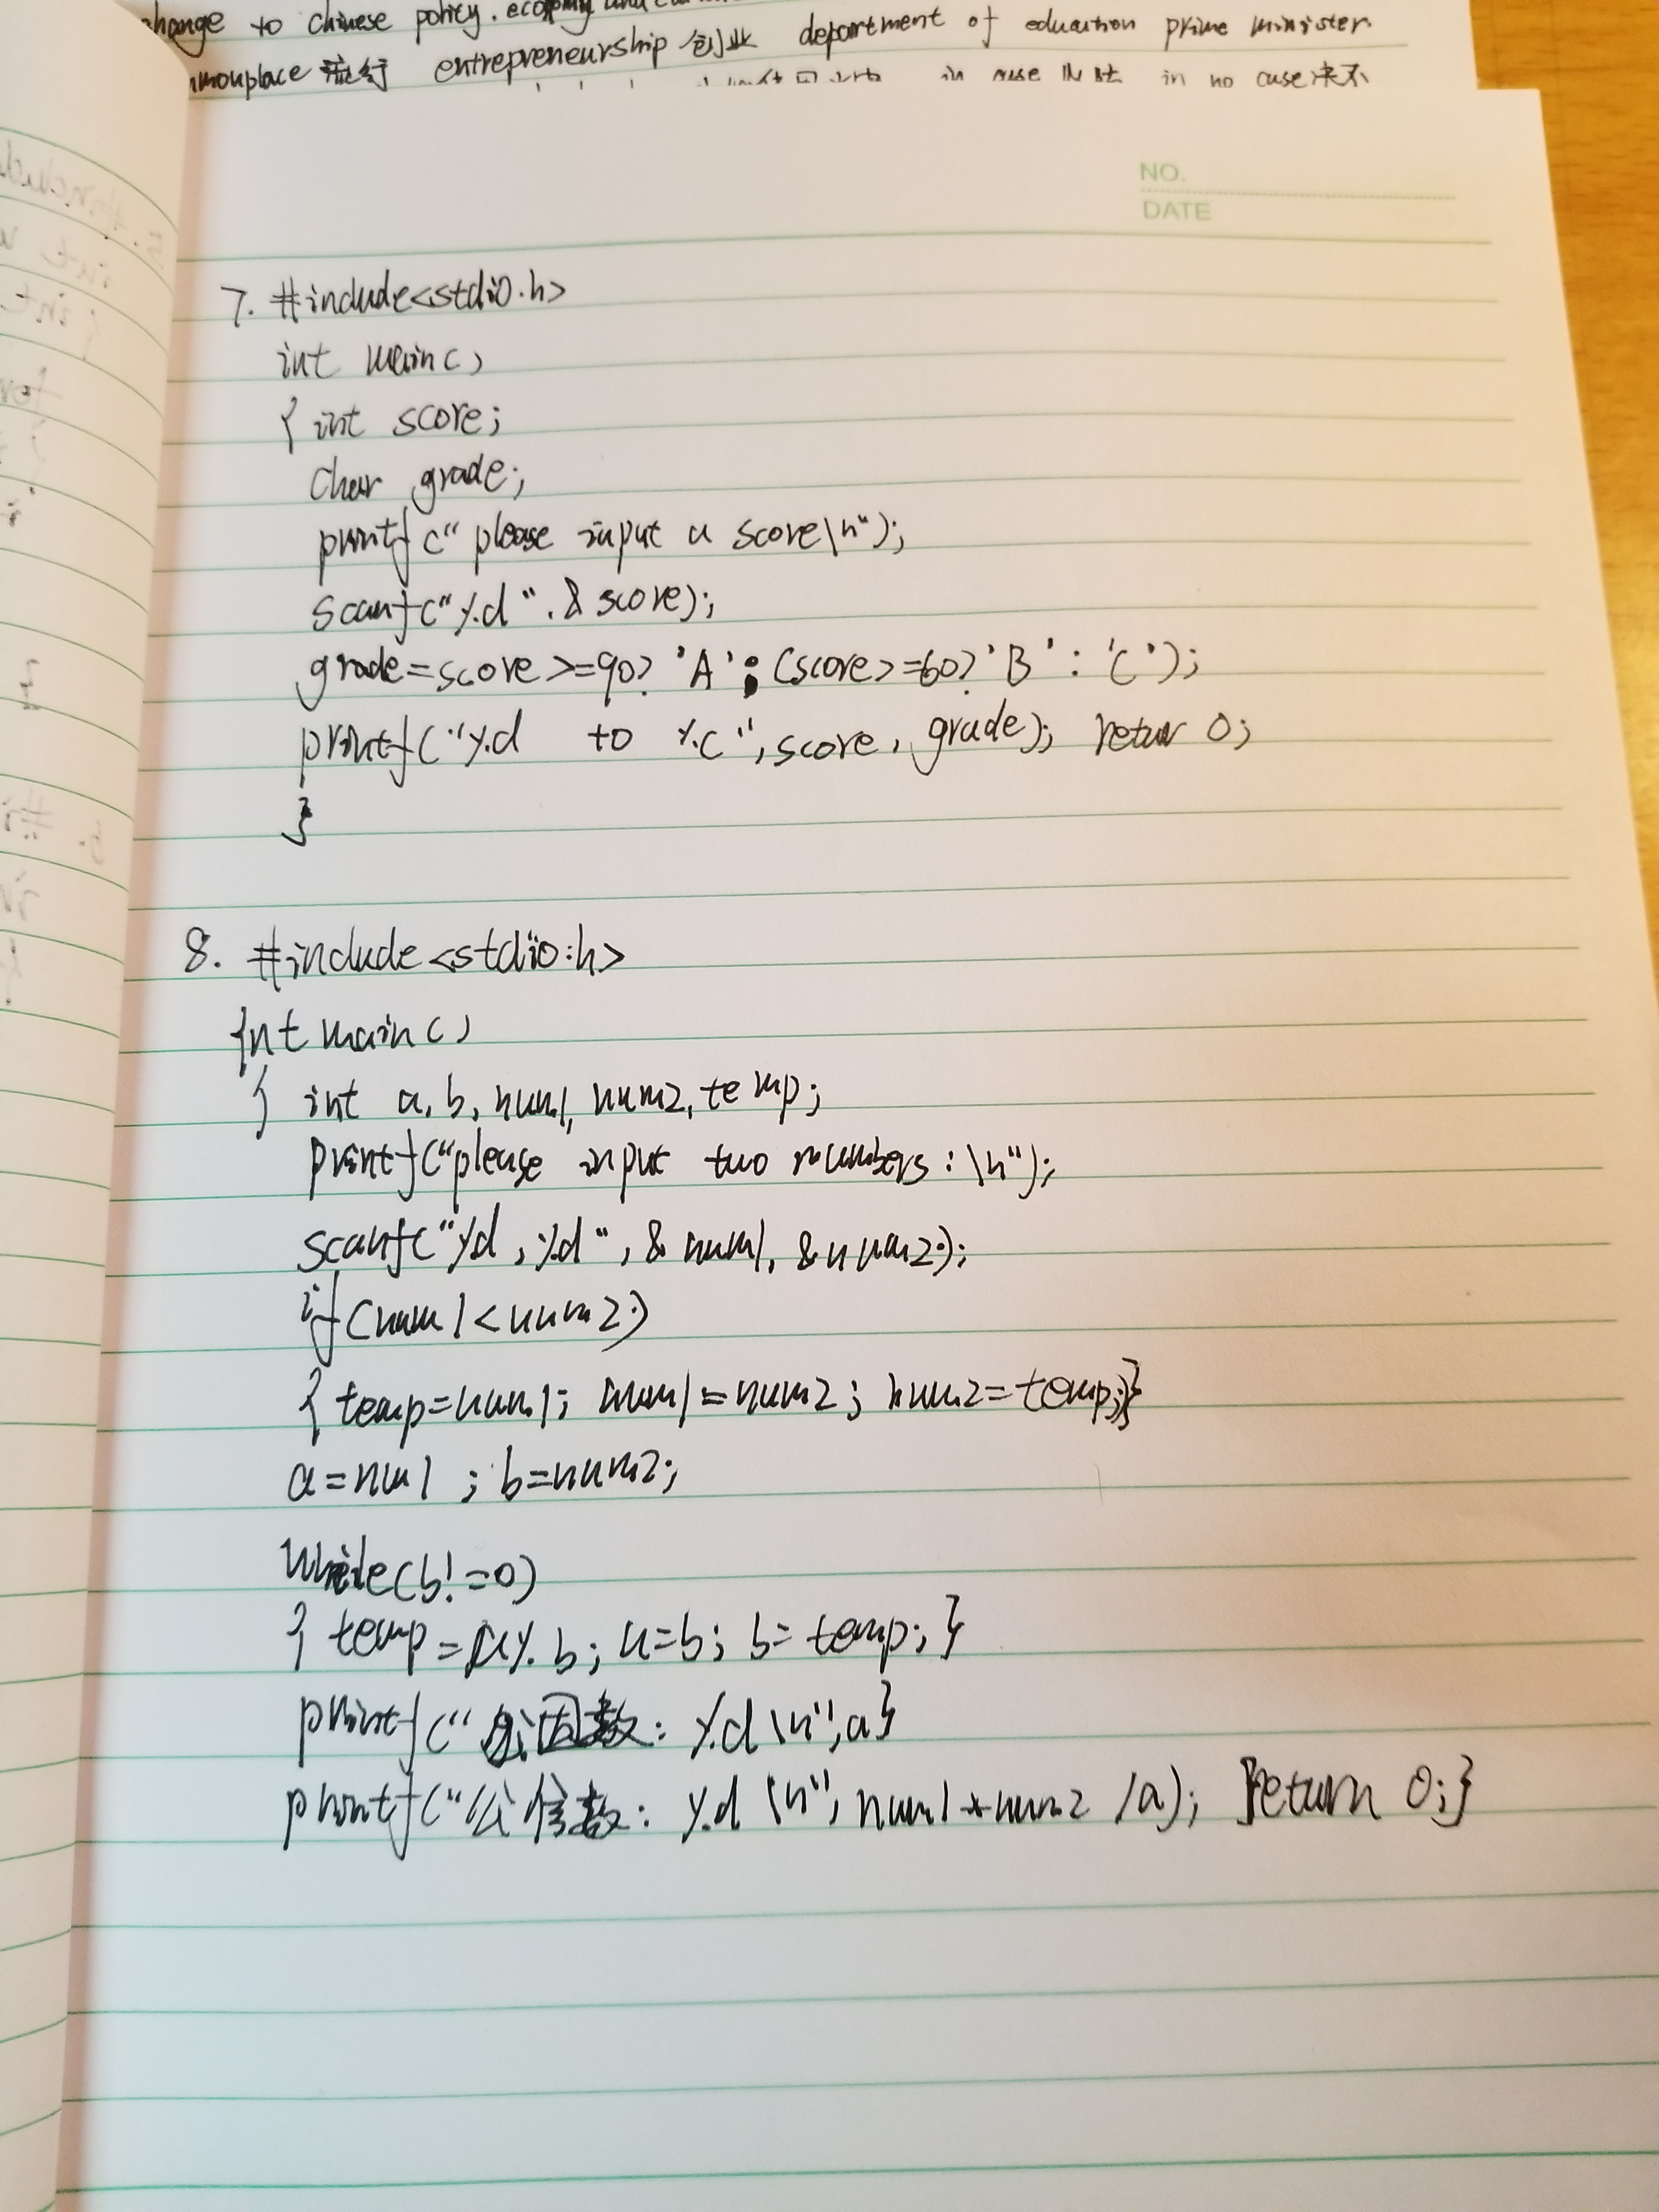 change to chinese policy. economy and
mmonplace 流行 entrepreneurship 创业 department of eduaction prime minister.
in case in no case 决不
NO.
DATE
7. #include<stdio.h>
int main()
{ int score;
char grade;
printf("please input a score\n");
scanf("%d".&score);
grade=score>=90?'A':(score>=60?'B':'C');
printf("%d to %c",score,grade); retur 0;
}
8. #include<stdio.h>
int main()
{ int a,b,num1,num2,temp;
printf("please input two numbers:\n");
scanf("%d,%d",&num1,&num2);
if(num1<num2)
{temp=num1; num1=num2; num2=temp;}
a=num1 ; b=num2;
while(b!=0)
{ temp=a%b; a=b; b=temp;}
printf("公因数: %d\n",a}
printf("公倍数: %d\n",num1*num2/a); return 0;}